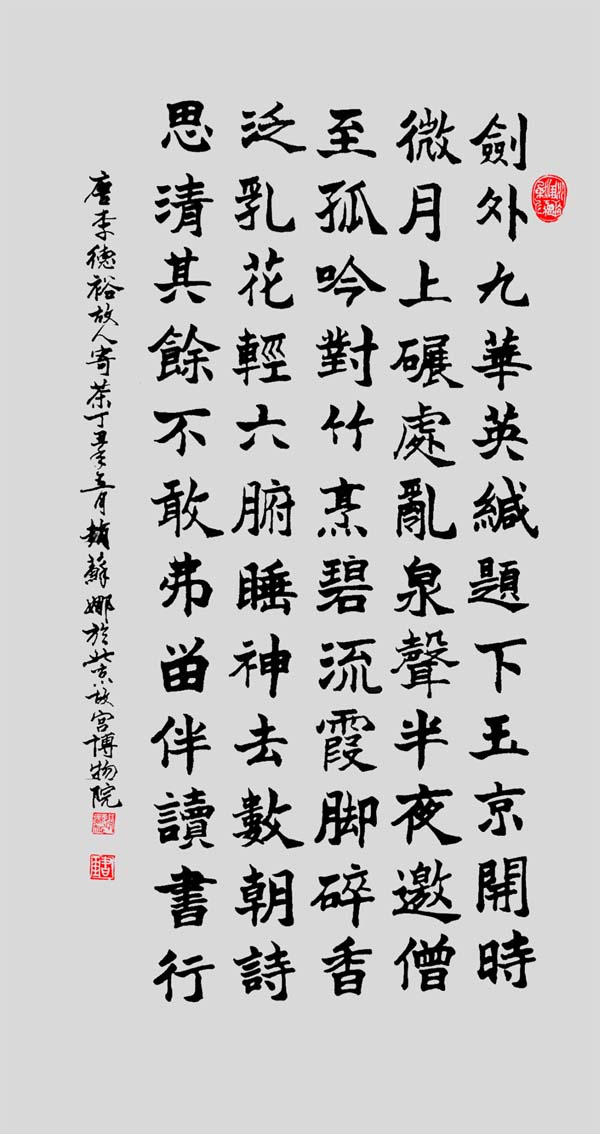 劍外九華英緘題下玉京開時
微月上碾處亂泉聲半夜邀僧
至孤吟對竹烹碧流霞脚碎香
泛乳花輕六腑睡神去數朝詩
思清其餘不敢弗留伴讀書行
唐李德裕故人寄茶丁丑年五月趙蘇娜於北京故宮博物院